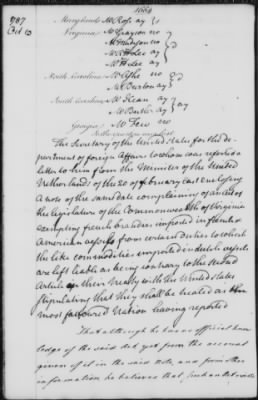 1787
Oct 13
Maryland Mr Ross ay
Virginia Mr Grayson no
Mr Madison no
Mr R H Lee ay
Mr H Lee ay
North Carolina Mr Ashe no
Mr Burton ay
South Carolina Mr Kean ay
Mr Butler ay
Georgia Mr Few no
The Secretary of the United States for the de-
partment of foreign Affairs to whom was referred a
letter to him from the Minister of the United
Netherlands of the 20 of February last enclosing
a note of the same date complaining of an act of
the legislature of the Commonwealth of Virginia
exempting french brandies imported in french &
American vessels from certain duties to which
the like commodities imported in dutch vessels
are left liable as being contrary to the second
Article in their treaty with the United States
stipulating that they shall be treated as the
most favoured Nation having reported
That although he has no official know
ledge of the said Act yet from the account
given of it in the said Note, and from other
information he believes that such an Act